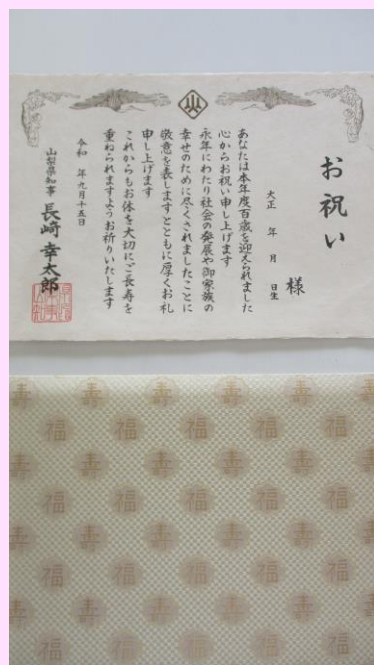 お祝い
様
大正　年　月　日生
あなたは本年度百歳を迎えられました
心からお祝い申し上げます
永年にわたり社会の発展や御家族の
幸せのために尽くされましたことに
敬意を表しますとともに厚くお礼
申し上げます
これからもお体を大切にご長寿を
重ねられますようお祈りいたします
令和　年九月十五日
山梨県知事　長崎幸太郎
寿　寿　寿　寿
福　福　福　福
寿　寿　寿　寿
福　福　福　福
寿　寿　寿　寿
福　福　福　福
寿　寿　寿　寿
福　福　福　福